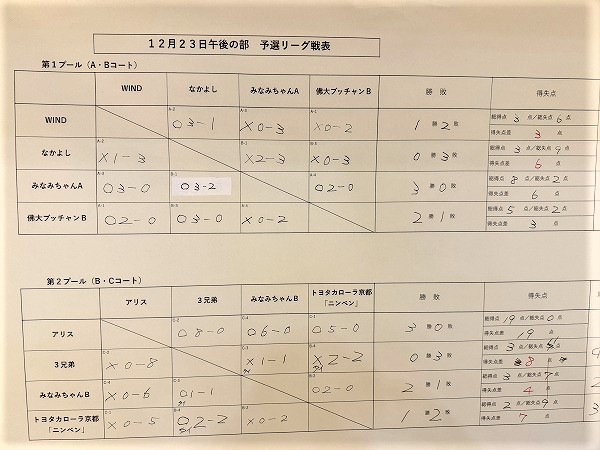 12月23日午後の部 予選リーグ戦表
第1プール(A・Bコート)
WIND なかよし みなみちゃんA 佛大ブッチャンB 勝敗 得失点
WIND A-2 ○3-1 A-3 ×0-3 A-1 ×0-2 1勝2敗 総得点 3 点/総失点 6 点
得失点差 3 点
なかよし A-2 ×1-3 B-1 ×2-3 B-3 ×0-3 0勝3敗 総得点 3 点/総失点 9 点
得失点差 6 点
みなみちゃんA A-3 ○3-0 B-1 ○3-2 A-4 ○2-0 3勝0敗 総得点 8 点/総失点 2 点
得失点差 6 点
佛大ブッチャンB A-1 ○2-0 B-3 ○3-0 A-4 ×0-2 2勝1敗 総得点 5 点/総失点 2 点
得失点差 3 点
第2プール(B・Cコート)
アリス 3兄弟 みなみちゃんB トヨタカローラ京都
「ニンペン」 勝敗 得失点
アリス C-2 ○8-0 C-4 ○6-0 C-1 ○5-0 3勝0敗 総得点 19 点/総失点 0 点
得失点差 19 点
3兄弟 C-2 ×0-8 C-3 ×1-1 B-4 ×2-2 0勝3敗 総得点 3 点/総失点 点
得失点差 8 点
みなみちゃんB C-4 ×0-6 C-3 ○1-1 B-2 ○2-0 2勝1敗 総得点 3 点/総失点 7 点
得失点差 4 点
トヨタカローラ京都
「ニンペン」 C-1 ×0-5 B-4 ○2-2 B-2 ×0-2 1勝2敗 総得点 2 点/総失点 9 点
得失点差 7 点